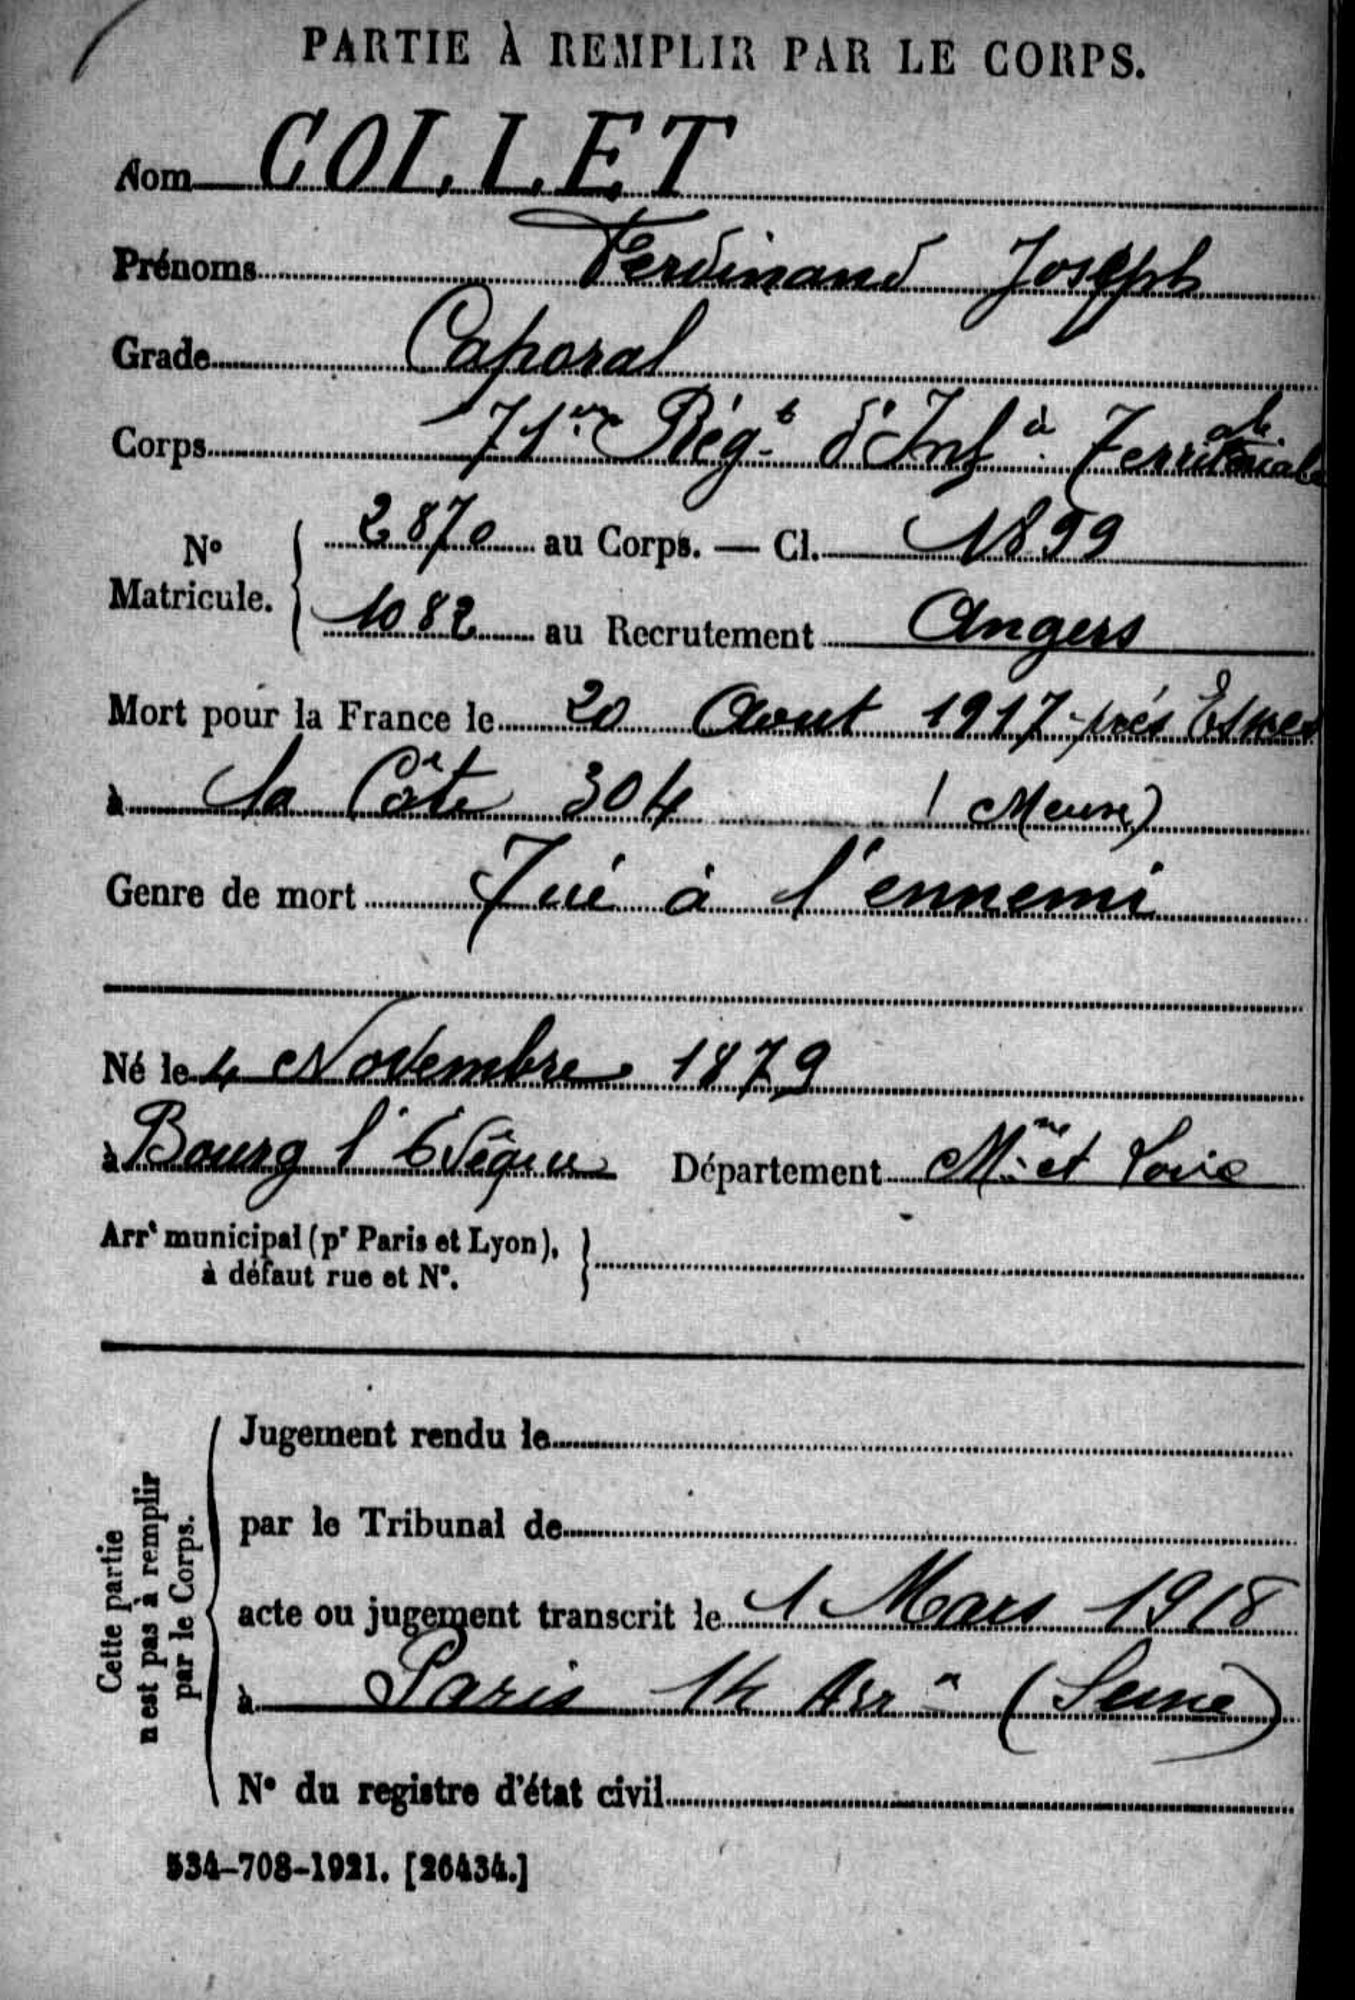 PARTIE À REMPLIR PAR LE CORPS.
Nom COLLET
Prénoms Ferdinand Joseph
Grade Caporal
Corps 71me Régt d'Infie Territoriale
N° Matricule. 2870 au Corps. — Cl. 1899
1082 au Recrutement Angers
Mort pour la France le 20 Aout 1917 près Esnes
à la Côte 304 (Meuse)
Genre de mort Tué à l'ennemi
Né le 4 Novembre 1879
à Bourg l'Evêque Département Mne et Loire
Arrt municipal (pr Paris et Lyon),
à défaut rue et N°.
Cette partie
n'est pas à remplir
par le Corps.
Jugement rendu le
par le Tribunal de
acte ou jugement transcrit le 1 Mars 1918
à Paris 14 Arr (Seine)
N° du registre d'état civil
534-708-1921. [26434.]